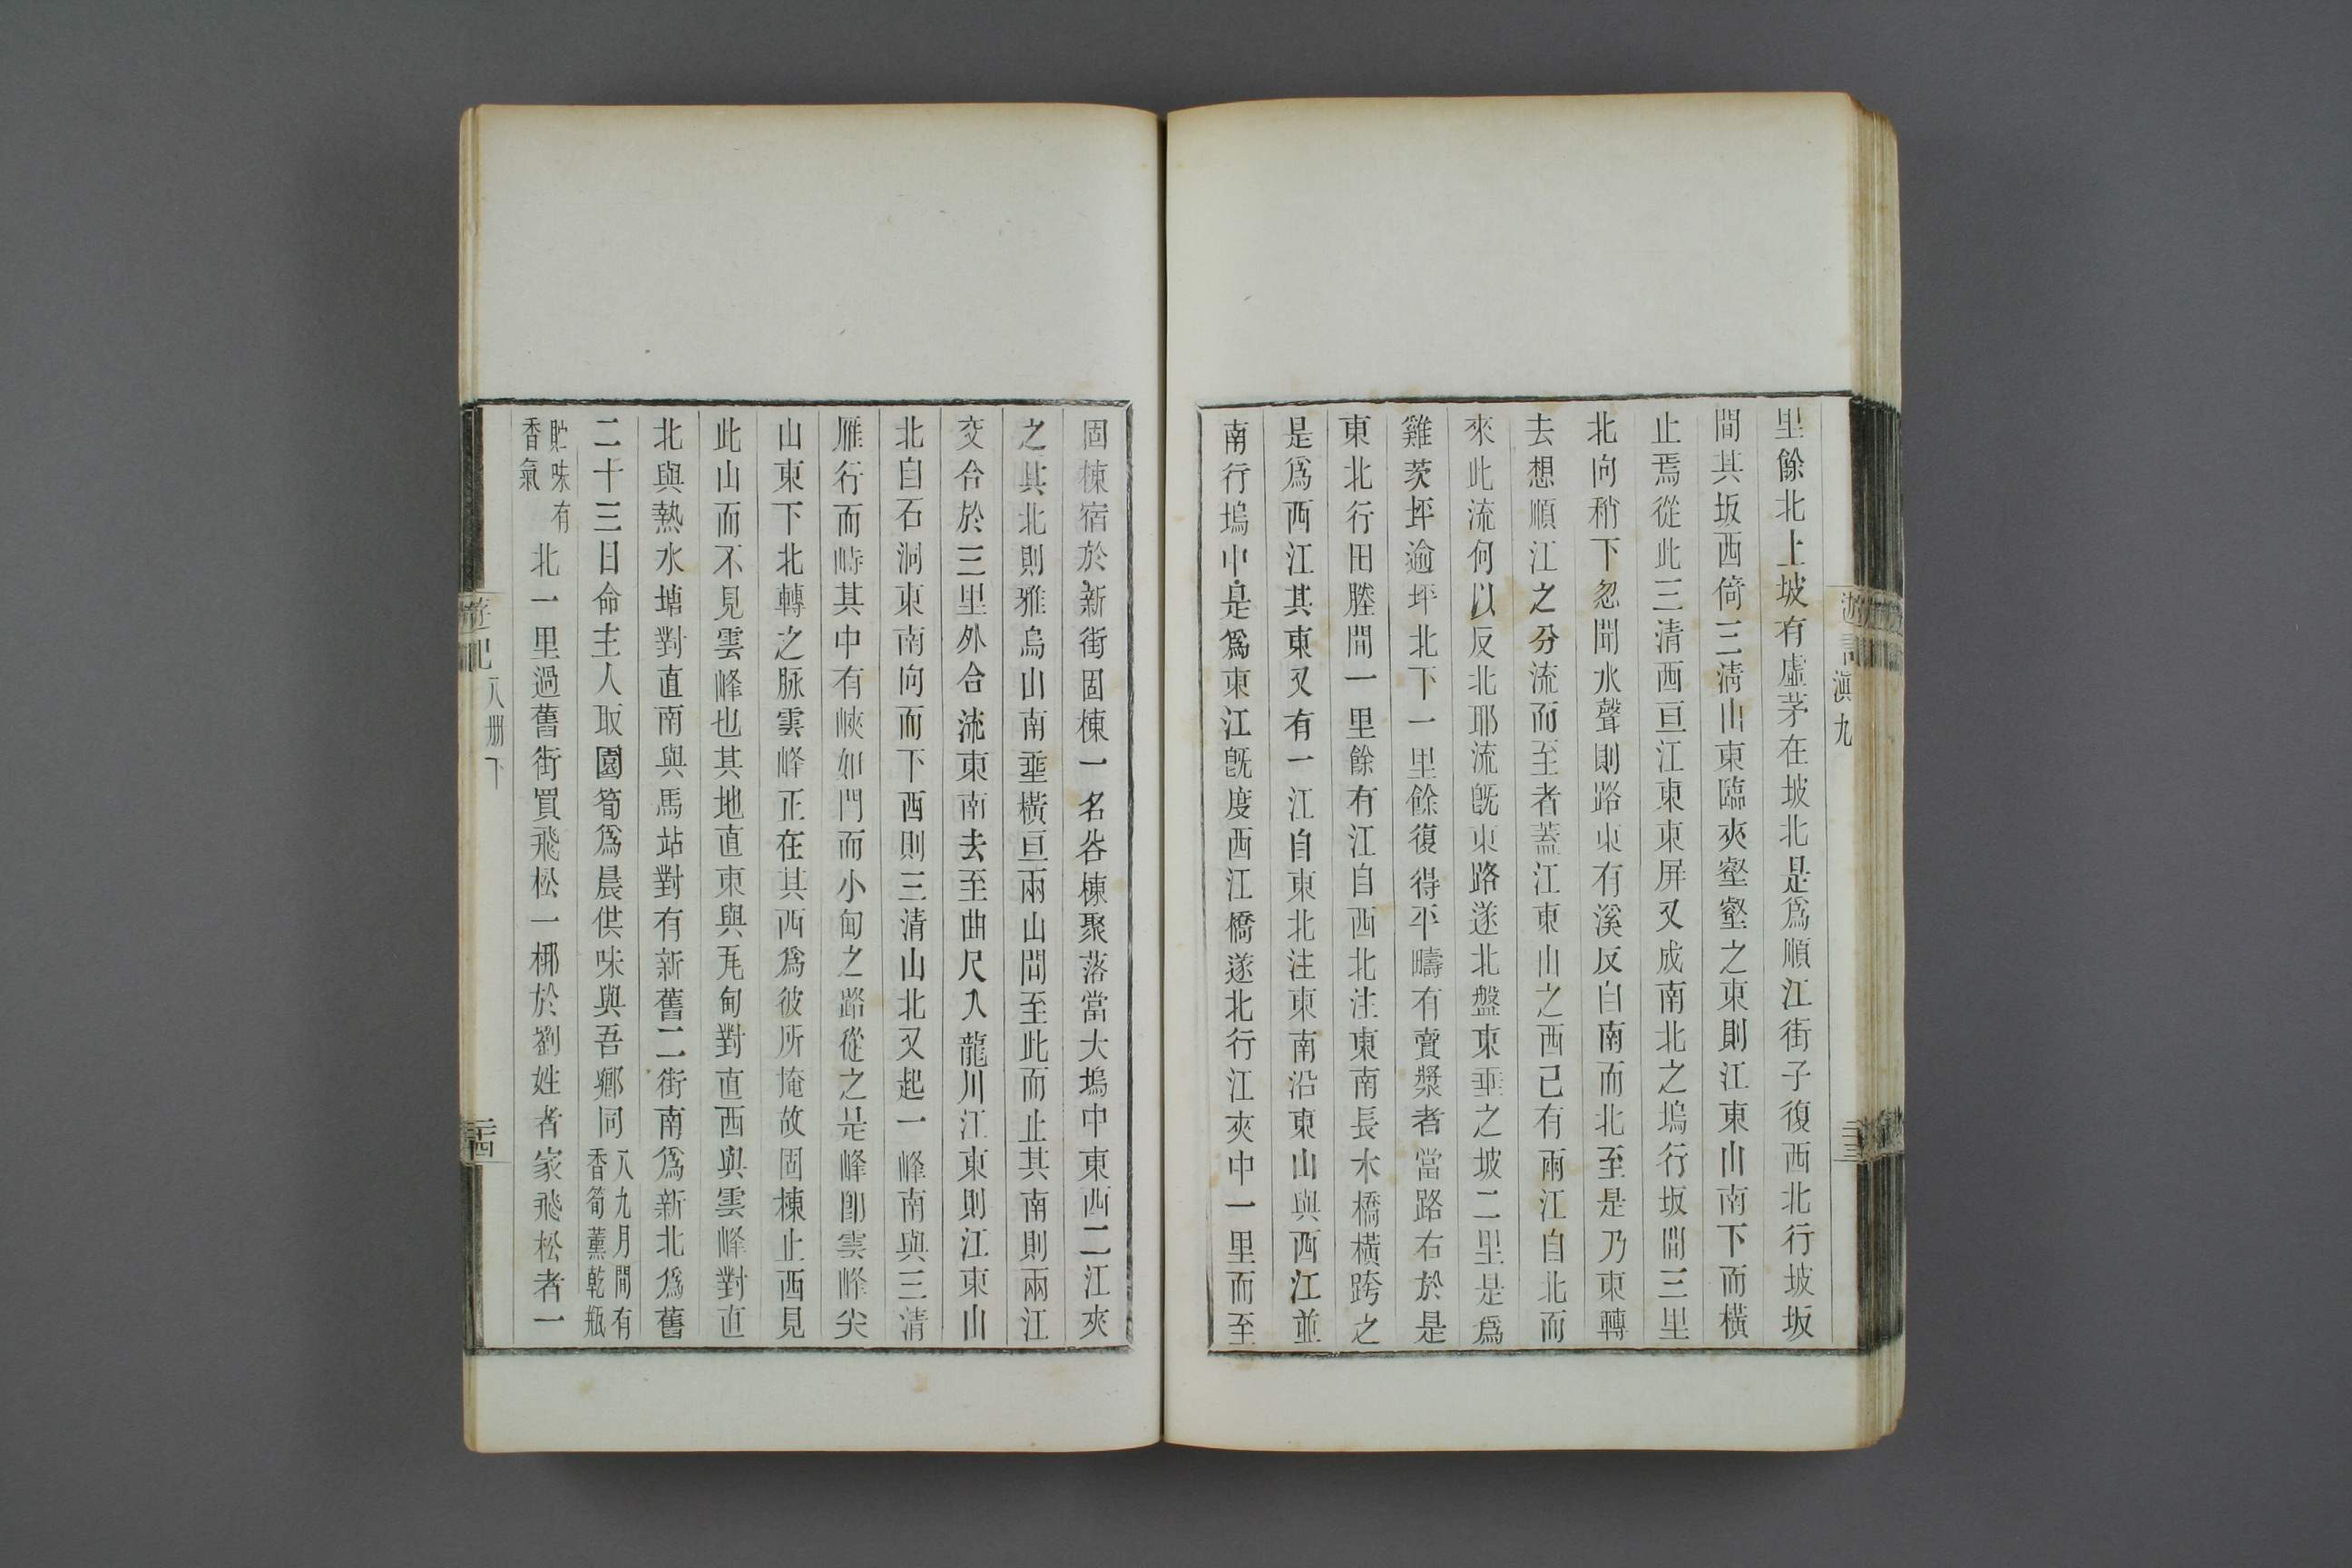 里餘北上坡有虛茅在坡北是爲順江街子復西北行坡坂
間其坂西倚三淸山東臨夾壑壑之東則江東山南下而橫
止焉從此三清西亘江東東屏又成南北之塢行坂間三里
北向稍下忽聞水聲則路東有溪反自南而北至是乃東轉
去想順江之分流而至者蓋江東山之西已有兩江自北而
來此流何以反北耶流旣東路遂北盤東垂之坡二里是爲
雞茨坪逾坪北下一里餘復得平疇有賣漿者當路右於是
東北行田塍間一里餘有江自西北注東南長木橋橫跨之
是爲西江其東又有一江自東北注東南沿東山與西江並
南行塢中是爲東江旣度西江橋遂北行江夾中一里而至
遊記 滇九 二十三
固棟宿於新街固棟一名谷棟聚落當大塢中東西二江夾
之其北則雅烏山南垂橫亘兩山間至此而止其南則兩江
交合於三里外合流東南去至曲尺入龍川江東則江東山
北自石洞東南向而下西則三清山北又起一峰南與三清
雁行而峙其中有峽如門而小甸之路從之是峰卽雲峰尖
山東下北轉之脉雲峰正在其西爲彼所掩故固棟止西見
此山而不見雲峰也其地直東與瓦甸對直西與雲峰對直
北與熱水塘對直南與馬站對有新舊二街南爲新北爲舊
二十三日命主人取園筍爲晨供味與吾鄉同八九月間有香筍薰乾瓶
貯味有香氣北一里過舊街買飛松一梆於劉姓者家飛松者一
遊記 八冊下 二十四